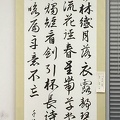 林纖月落衣露靜琴
流花徑春星帶草堂
燭短看劍引杯長詩
詠扁舟意不忘